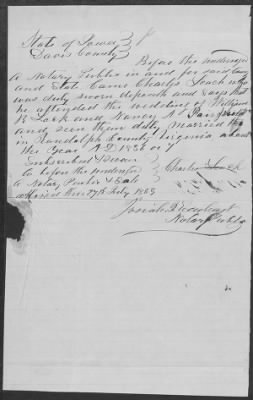 State of Iowa }
Davis County }
Before the undersigned
a Notary Public in and for said County
and State came Charles Lock who
was duly sworn deposeth and says that
he attended the wedding of William
B Lock and Nancy
and seen them duly married
in Randolph County Virginia about
the year A D 1836 or 7
Subscribed & sworn
to before the undersigned } Charles Lock
a Notary Public & Seal
affixed this 27th July 1863
Josiah
Notary Public